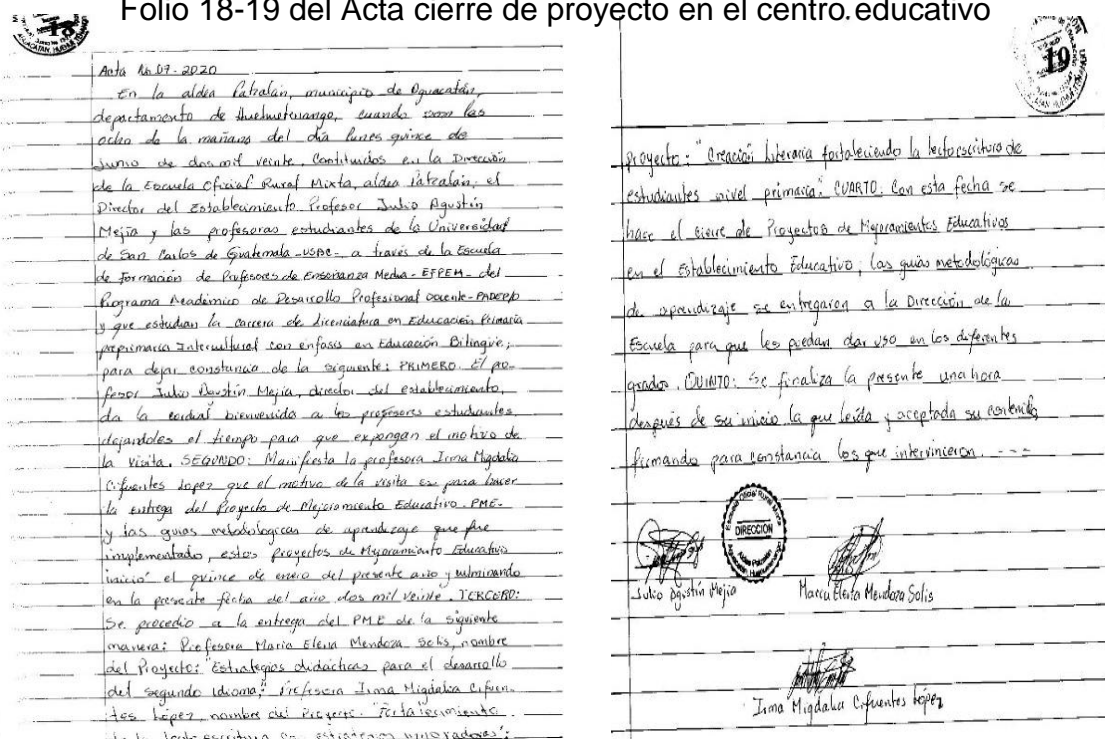 Folio 18-19 del Acta cierre de proyecto en el centro educativo
18
Acta No. 07-2020
En la aldea Patzalán, municipio de Aguacatán,
departamento de Huehuetenango, cuando son las
ocho de la mañana del día lunes quince de
Junio de dos mil veinte, Contituidos en la Dirección
de la Escuela Oficial Rural Mixta, aldea Patzalán, el
Director del Establecimiento Profesor Julio Agustín
Mejía y las profesoras estudiantes de la Universidad
de San Carlos de Guatemala -USAC- a través de la Escuela
de Formación de Profesores de Enseñanza Media - EFPEM - del
Programa Académico de Desarrollo Profesional Docente - PADEP/D
y que estudian la carrera de Licenciatura en Educación Primaria
preprimaria Intercultural con énfasis en Educación Bilingüe;
para dejar constancia de lo siguiente: PRIMERO. El pro-
fesor Julio Agustín Mejía, director del establecimiento,
da la cordial bienvenida a los profesores estudiantes,
dejandoles el tiempo para que expongan el motivo de
la visita. SEGUNDO: Manifiesta la profesora Irma Migdalia
Cifuentes López que el motivo de la visita es para hacer
la entrega del Proyecto de Mejoramiento Educativo -PME-
y las guias metodologicas de aprendizaje que fue
implementado, estos Proyectos de Mejoramiento Educativo
inició el quince de enero del presente año y culminando
en la presente fecha del año dos mil veinte. TERCERO:
Se procedio a la entrega del PME de la siguiente
manera: Profesora Maria Elena Mendoza Solis, nombre
del Proyecto: "Estrategias didácticas para el desarrollo
del segundo idioma," Profesora Irma Migdalia Cifuen-
tes López, nombre del Proyecto. "Fortalecimiento
de la lecto escritura con estrategias innovadoras";
19
proyecto: "Creación Literaria fortaleciendo la lectoescritura de
estudiantes nivel primaria." CUARTO: Con esta fecha se
hace el cierre de Proyectos de Mejoramientos Educativos
en el Establecimiento Educativo; las guías metodológicas
de aprendizaje se entregaron a la Dirección de la
Escuela para que les puedan dar uso en los diferentes
grados. QUINTO: Se finaliza la presente una hora
despues de su inicio la que leída y aceptada su contenido,
firmando para constancia los que intervinieron. ---
DIRECCIÓN
Julio Agustín Mejía
María Elena Mendoza Solis
Irma Migdalia Cifuentes López